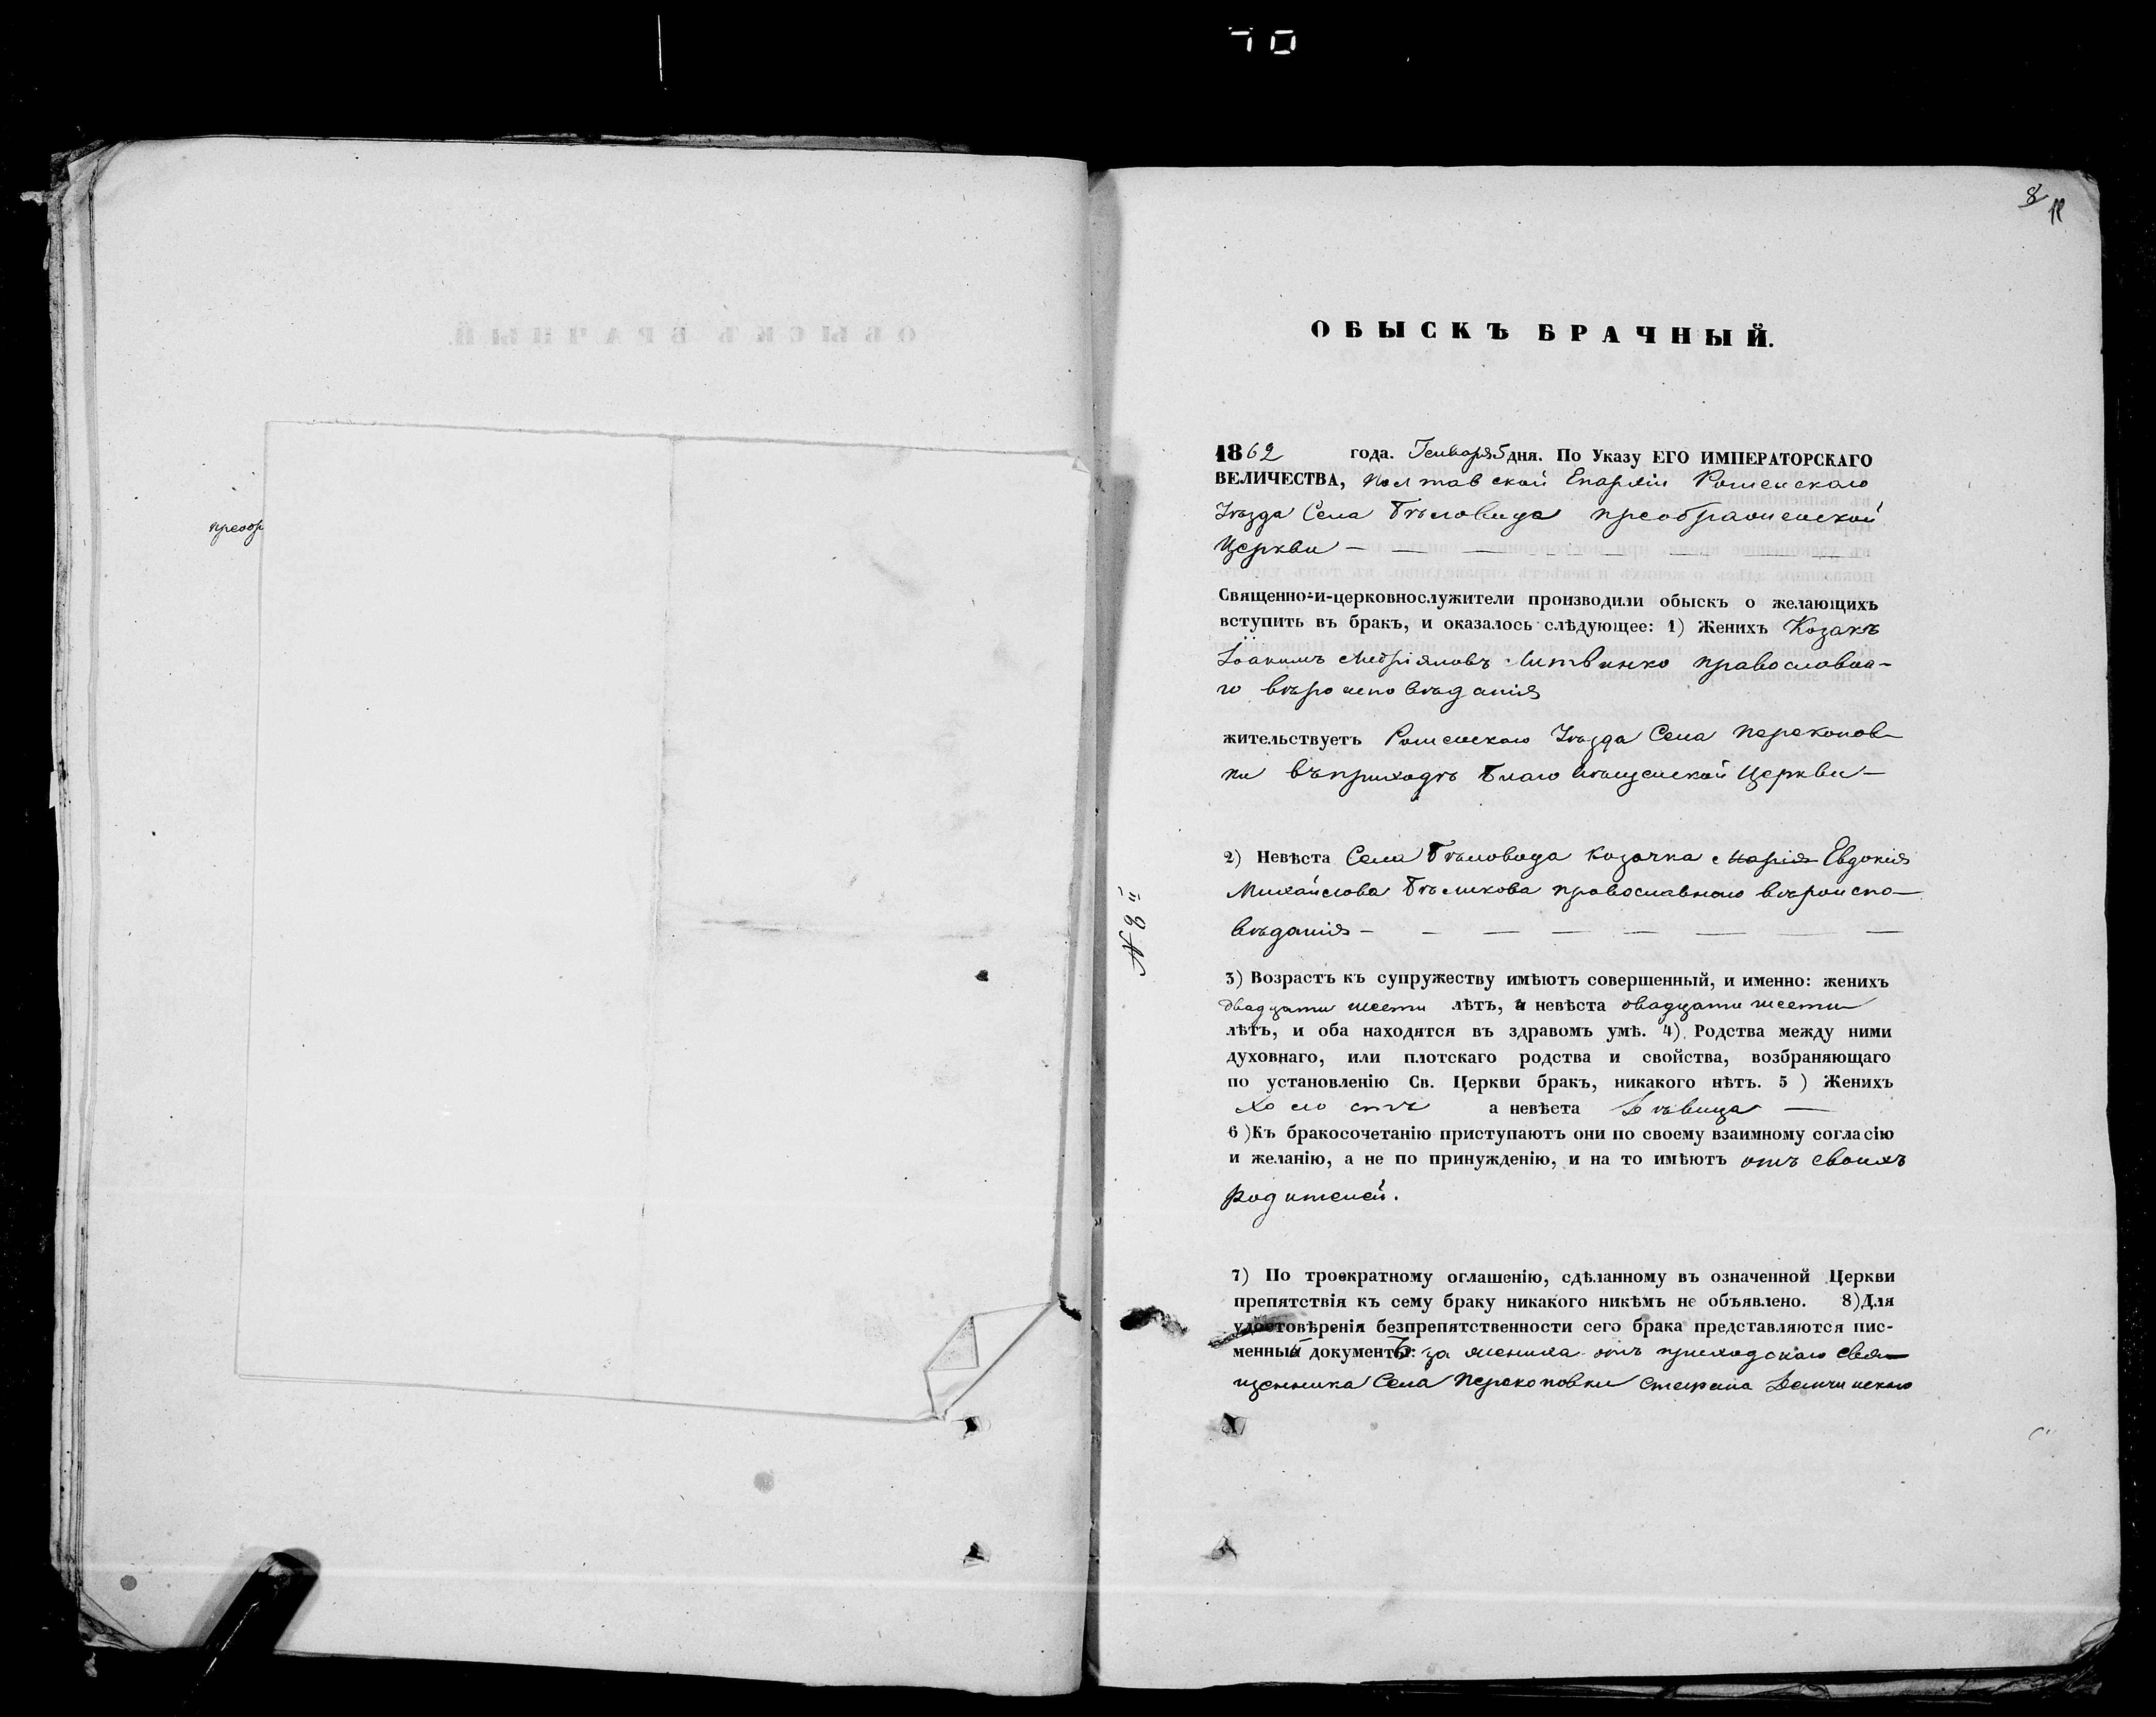 преобр
8
ОБЫСКЪ БРАЧНЫЙ.
1862 года. Генваря 5 дня. По Указу ЕГО ИМПЕРАТОРСКАГО
ВЕЛИЧЕСТВА, Полтавской Епархіи Роменскаго
Уѣзда Села Бѣловода преображенской
Церкви —
Священно-и-церковнослужители производили обыскъ о желающихъ
вступить въ бракъ, и оказалось слѣдующее: 1) Женихъ Козакъ
Іоакимъ Андріяновъ Литвинко православна-
го вѣроисповѣданія
жительствуетъ Роменскаго Уѣзда Села Перекопов-
ки въ приходѣ Благовѣщенской Церкви —
2) Невѣста Села Бѣловода козачка Марія Евдокія
Михайлова Бѣликова православнаго вѣроиспо-
вѣданія —
№ 8й
3) Возрастъ къ супружеству имѣютъ совершенный, и именно: женихъ
двадцати шести лѣтъ, а невѣста двадцати шести
лѣтъ, и оба находятся въ здравомъ умѣ. 4) Родства между ними
духовнаго, или плотскаго родства и свойства, возбраняющаго
по установленію Св. Церкви бракъ, никакого нѣтъ. 5) Женихъ
холостъ а невѣста дѣвица —
6) Къ бракосочетанію приступаютъ они по своему взаимному согласію
и желанію, а не по принужденію, и на то имѣютъ отъ своихъ
родителей.
7) По троекратному оглашенію, сдѣланному въ означенной Церкви
препятствія къ сему браку никакого никѣмъ не объявлено. 8) Для
удостовѣренія безпрепятственности сего брака представляются пис-
менный документъ: за жениха отъ приходскаго свя-
щенника Села Перекоповки Стефана